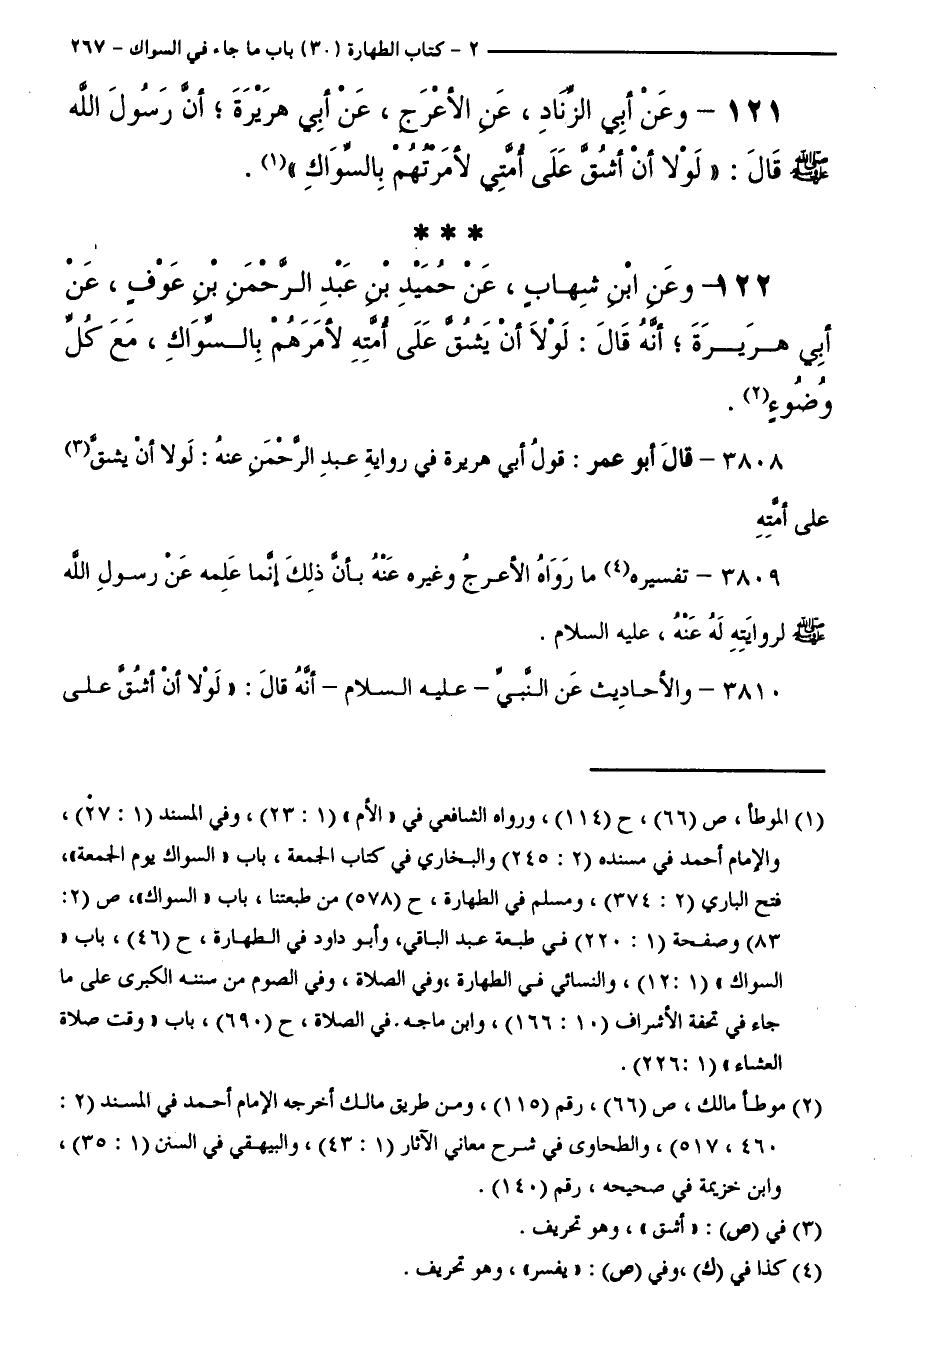 ٢ - كتاب الطهارة (٣٠) باب ما جاء في السواك - ٢٦٧
١٢١ - وعَنْ أبِي الزِّنَادِ ، عَنِ الأعْرَجِ ، عَنْ أبي هرَيْرَةَ ؛ أنَّ رَسُولَ اللَّه
ﷺ قَالَ : « لَوْلا أنْ أشُقَّ عَلَى أُمَّتِي لأمَرْتُهُمْ بِالسِّوَاكِ »(١) .
***
١٢٢- وعَنِ ابْنِ شِهـابٍ ، عَنْ حُمَيْدِ بْنِ عَبْدِ الـرَّحْمَنِ بْنِ عَوْفٍ ، عَنْ
أبِي هـرَيـرَةَ ؛ أنَّهُ قَالَ : لَوْلاَ أنْ يَشقَّ عَلَى أُمَّتِهِ لأمَرَهُمْ بِالـسِّوَاكِ ، مَعَ كُلِّ
وُضُوءٍ(٢) .
٣٨٠٨ - قالَ أبو عمر : قولُ أبي هريرة في روايةِ عـبدِ الرَّحْمَنِ عنهُ : لَولا أنْ يشقَّ(٣)
على أمَّتِهِ
٣٨٠٩ - تفسيره(٤) ما رَوَاهُ الأعـرجُ وغيره عَنْهُ بـأنَّ ذلِكَ إنَّما عَلِمه عَنْ رسـولِ اللَّه
ﷺ لروايَتِهِ لَهُ عَنْهُ ، عليه السلام .
٣٨١٠ - والأحـاديث عَن الـنَّبيِّ - عليـه الـسلام - أنَّهُ قالَ : « لَوْلا أنْ أشُقَّ علـى
(١) الموطأ ، ص (٦٦) ، ح (١١٤) ، ورواه الشافعي في « الأم » (١ : ٢٣) ، وفي المسند (١ : ٢٧) ،
والإمام أحمد في مسنده (٢ : ٢٤٥) والبخاري في كتاب الجمعة ، باب « السواك يوم الجمعة»،
فتح الباري (٢ : ٣٧٤) ، ومسلم في الطهارة ، ح (٥٧٨) من طبعتنا ، باب « السواك»، ص (٢:
٨٣) وصفحة (١ : ٢٢٠) فـي طبعة عبد الباقي، وأبـو داود في الـطهارة ، ح (٤٦) ، باب «
السواك » (١ :١٢) ، والنسائي فـي الطهارة ،وفي الصلاة ، وفي الصوم من سننـه الكبرى على ما
جاء في تحفة الأشراف (١٠ : ١٦٦) ، وابن ماجـه .في الصلاة ، ح (٦٩٠) ، باب « وقت صلاة
العشاء » (١ :٢٢٦) .
(٢) موطـأ مالك ، ص (٦٦) ، رقم (١١٥) ، ومـن طريق مالـك أخرجه الإمام أحمـد في المسند (٢ :
٤٦٠ ، ٥١٧) ، والطحاوى في شـرح معاني الآثار (١ : ٤٣) ، والبيهـقي في السنن (١ : ٣٥) ،
وابن خزيمة في صحيحه ، رقم (١٤٠) .
(٣) في (ص) : « أشق » ، وهو تحريف .
(٤) كذا في (ك) ،وفي (ص) : « يفسر» ، وهو تحريف .